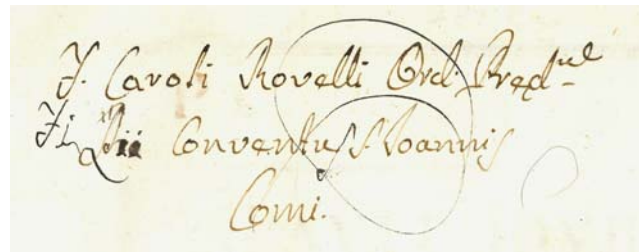 F. Caroli Rovelli Ord. Pred.
Filii Conventus S. Ioannis
Comi.